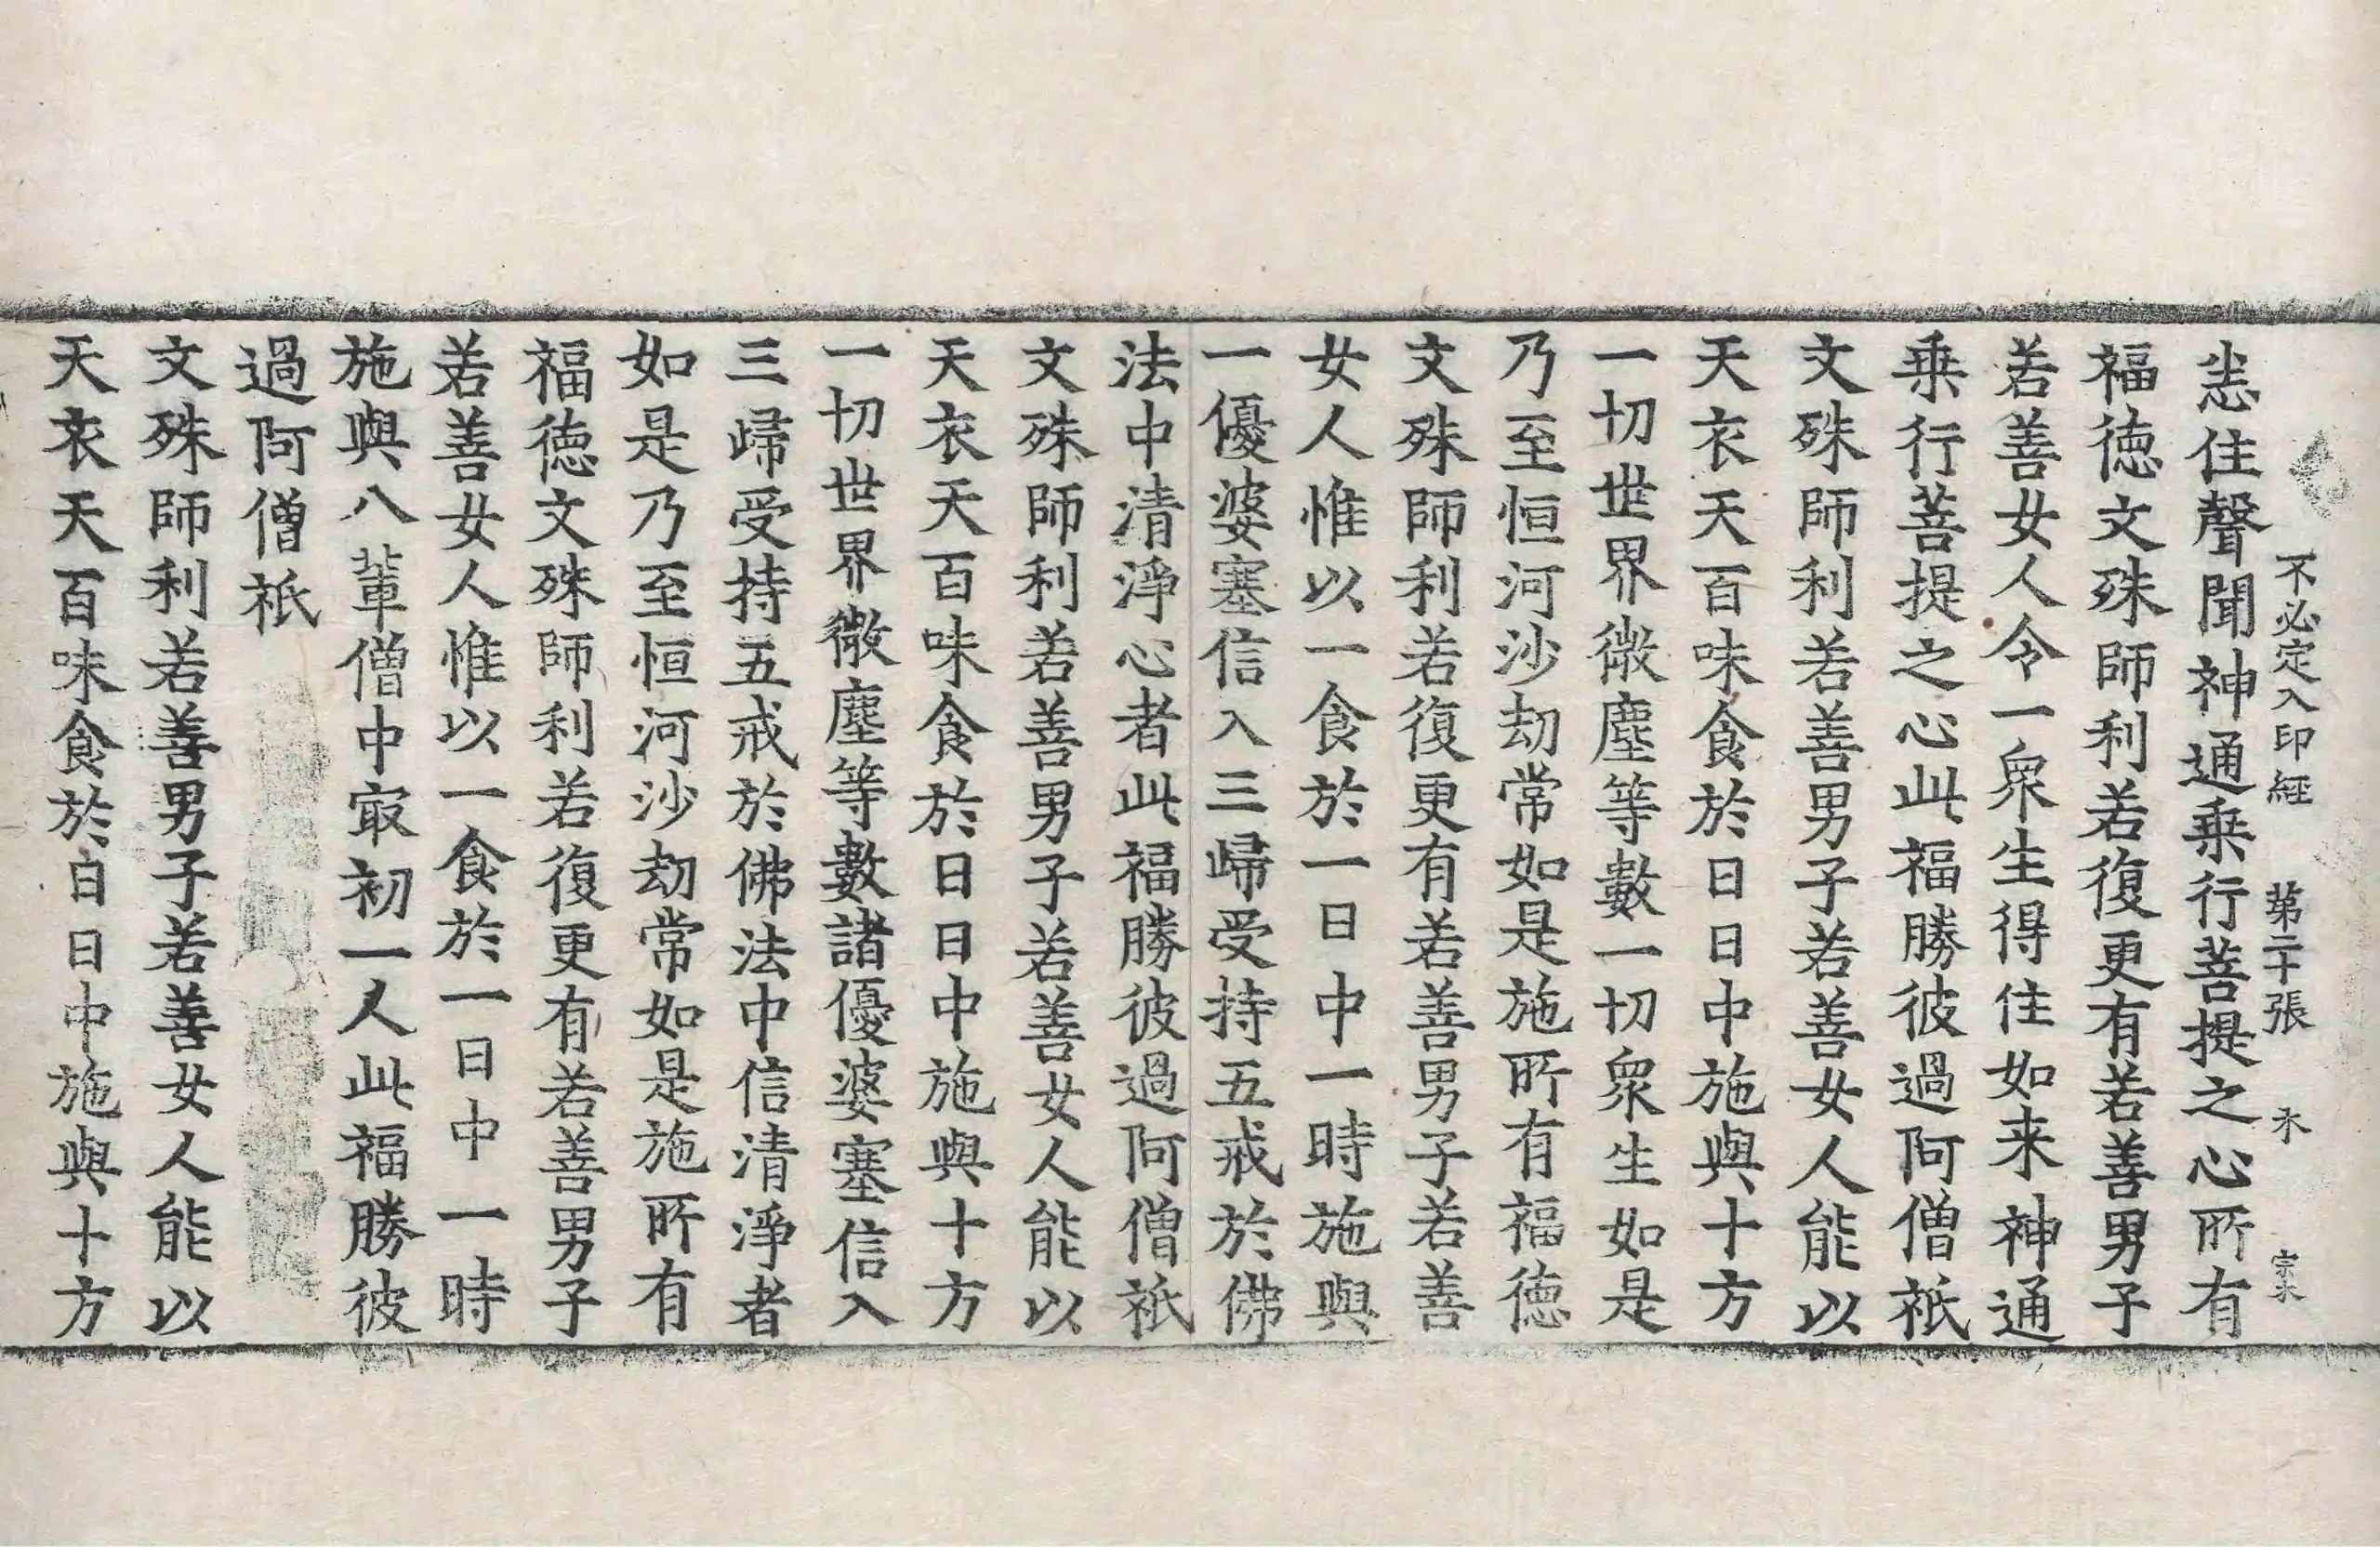 不必定入印經　第二十張　木　宗木
恙住聲聞神通乗行菩提之心所有
福徳文殊師利若復更有若善男子
若善女人令一衆生得住如来神通
乗行菩提之心此福勝彼過阿僧祇
文殊師利若善男子若善女人能以
天衣天百味食於日日中施與十方
一切世界微塵等數一切衆生如是
乃至恒河沙劫常如是施所有福徳
文殊師利若復更有若善男子若善
女人惟以一食於一日中一時施與
一優婆塞信入三歸受持五戒於佛
法中清淨心者此福勝彼過阿僧祇
文殊師利若善男子若善女人能以
天衣天百味食於日日中施與十方
一切世界微塵等數諸優婆塞信入
三歸受持五戒於佛法中信清淨者
如是乃至恒河沙劫常如是施所有
福徳文殊師利若復更有若善男子
若善女人惟以一食於一日中一時
施與八輩僧中㝡初一人此福勝彼
過阿僧祇
文殊師利若善男子若善女人能以
天衣天百味食於白日中施與十方